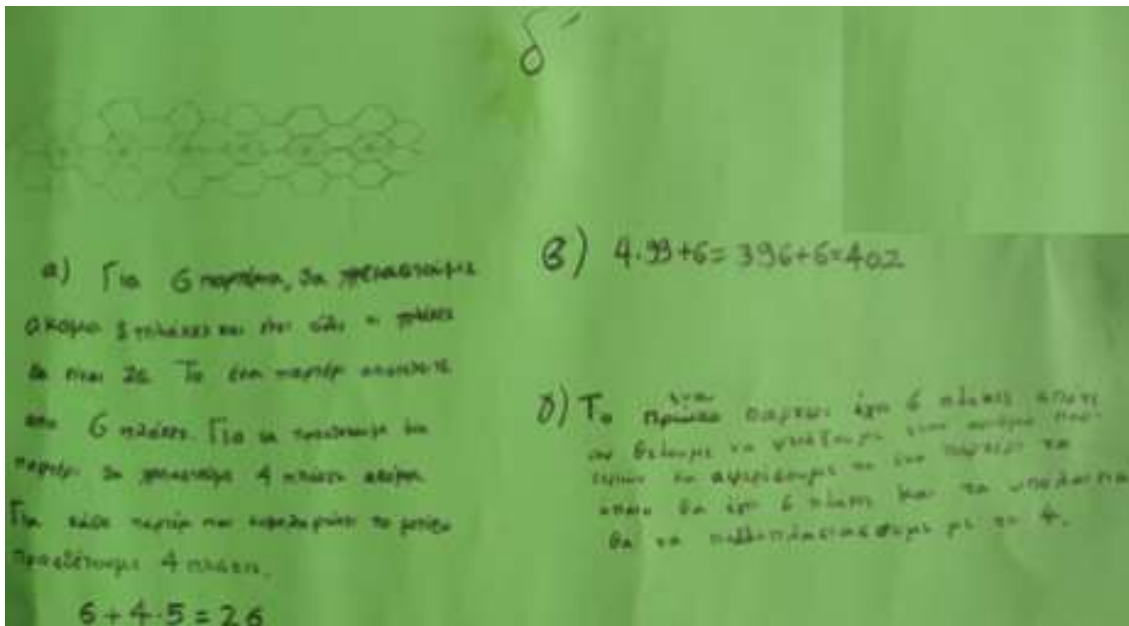 δ'
α) Για 6 παρτέρια, θα χρειαστούμε
ακόμα 8 πλάκες και έτσι όλες οι πλάκες
θα είναι 26 Το ένα παρτέρι αποτελείτε
απο 6 πλάκες. Για να προσθέσουμε ένα
παρτέρι θα χρειαστούμε 4 πλάκες ακόμα.
Για κάθε παρτέρι που το μοτίβο
προσθέτουμε 4 πλάκες.
6+4·5=26
β) 4·99+6=396+6=402
δ) Το ένα έχει 6 πλάκες
αν θέλουμε να
να αφαιρέσουμε το ένα παρτέρι το
οποίο θα έχει 6 πλάκες και τα υπόλοιπα
θα τα πολλαπλασιάσουμε με το 4.